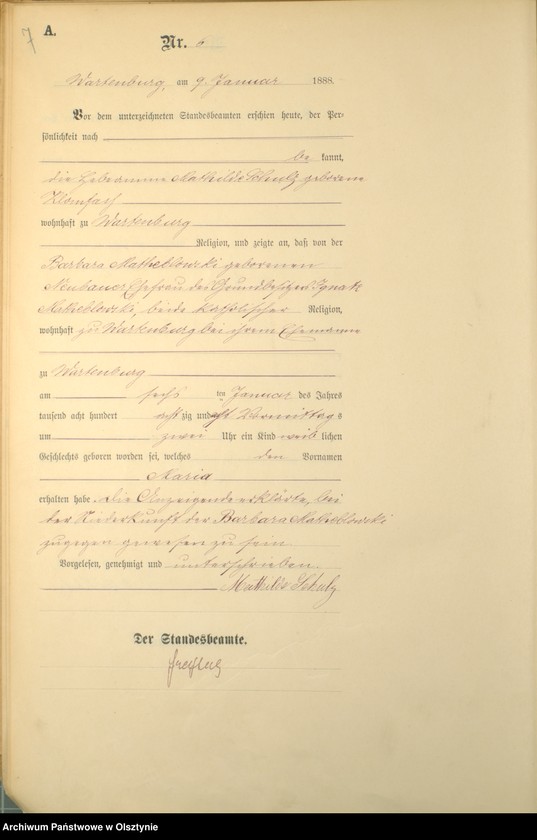 7
A.
Nr. 6
Wartenburg, am 9. Januar 1888.
Vor dem unterzeichneten Standesbeamten erschien heute, der Per-
sönlichkeit nach
be kannt,
die Hebamme Mathilde Schulz geborene
wohnhaft zu Wartenburg
Religion, und zeigte an, daß von der
Barbara Matheblowski geborenen
Neubauer, Ehefrau des Grundbesitzers Ignatz
Matheblowski, beide katholischer Religion,
wohnhaft zu Wartenburg bei ihrem Ehemanne
zu Wartenburg
am sechs ten Januar des Jahres
tausend acht hundert acht zig und acht Vormittag s
um zwei Uhr ein Kind weib lichen
Geschlechts geboren worden sei, welches den Vornamen
Maria
erhalten habe. Die Anzeigende erklärte, bei
der Niederkunft der Barbara Matheblowski
zugegen gewesen zu sein
Vorgelesen, genehmigt und unterschrieben.
Mathilde Schulz
Der Standesbeamte.
Archiwum Państwowe w Olsztynie